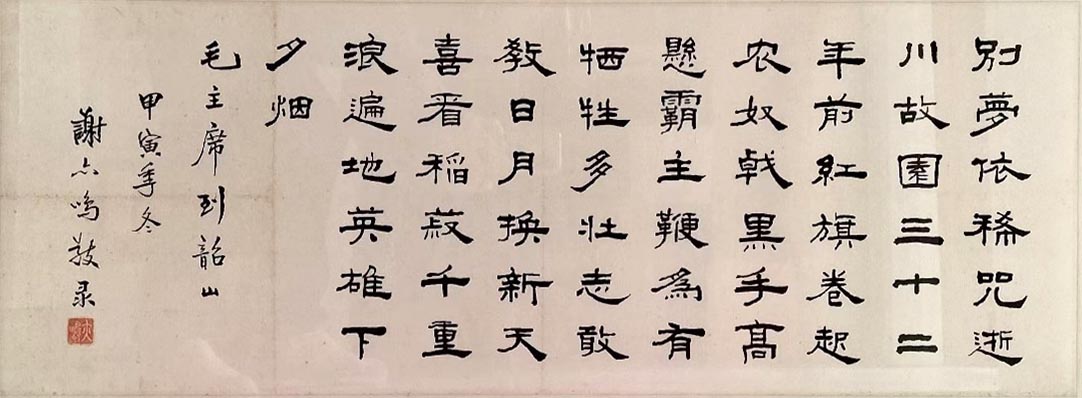 别夢依稀咒逝
川故園三十二
年前紅旗卷起
农奴戟黑手高
懸霸主鞭為有
牺牲多壮志敢
教日月换新天
喜看稻菽千重
浪遍地英雄下
夕烟
毛主席到韶山
甲寅季冬
謝亦鸣敬录